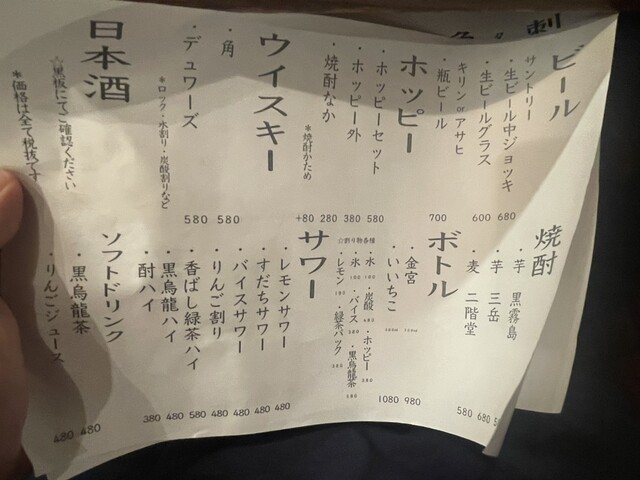 刺
ビール
サントリー
・生ビール中ジョッキ 680
・生ビールグラス 600
キリン or アサヒ
・瓶ビール 700
ホッピー
・ホッピーセット 580
・ホッピー外 380
・焼酎なか 280
*焼酎かため +80
ウイスキー
・角 580
・デュワーズ 580
*ロック・水割り・炭酸割りなど
日本酒
☆黒板にてご確認ください
*価格は全て税抜です
焼酎
・芋 黒霧島
・芋 三岳 680
・麦 二階堂 580
ボトル
・金宮 980
・いいちこ 1080
☆割り物各種
・水
・炭酸
・ホッピー
・氷
・バイス
・黒烏龍茶
・レモン
・緑茶パック
サワー
・レモンサワー 480
・すだちサワー 480
・バイスサワー 480
・りんご割り 480
・香ばし緑茶ハイ 580
・黒烏龍ハイ 480
・酎ハイ 380
ソフトドリンク
・黒烏龍茶 480
・りんごジュース 480